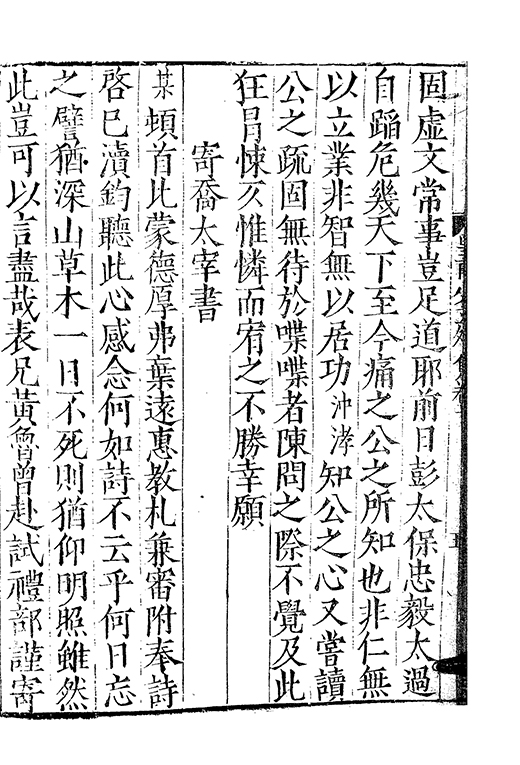 固虛文常事豈足道耶前日彭太保忠毅太過
自蹈危幾天下至今痛之公之所知也非仁無
以立業非智無以居功沖涍知公之心又嘗讀
公之疏固無待於喋喋者陳問之際不覺及此
狂冐悚仄惟憐而宥之不勝幸願
寄喬太宰書
某頓首比蒙德厚弗棄遠惠教札兼審附奉詩
啓已瀆鈞聽此心感念何如詩不云乎何日忘
之譬猶深山草木一日不死則猶仰明照雖然
此豈可以言盡哉表兄黃魯曾赴試禮部謹寄